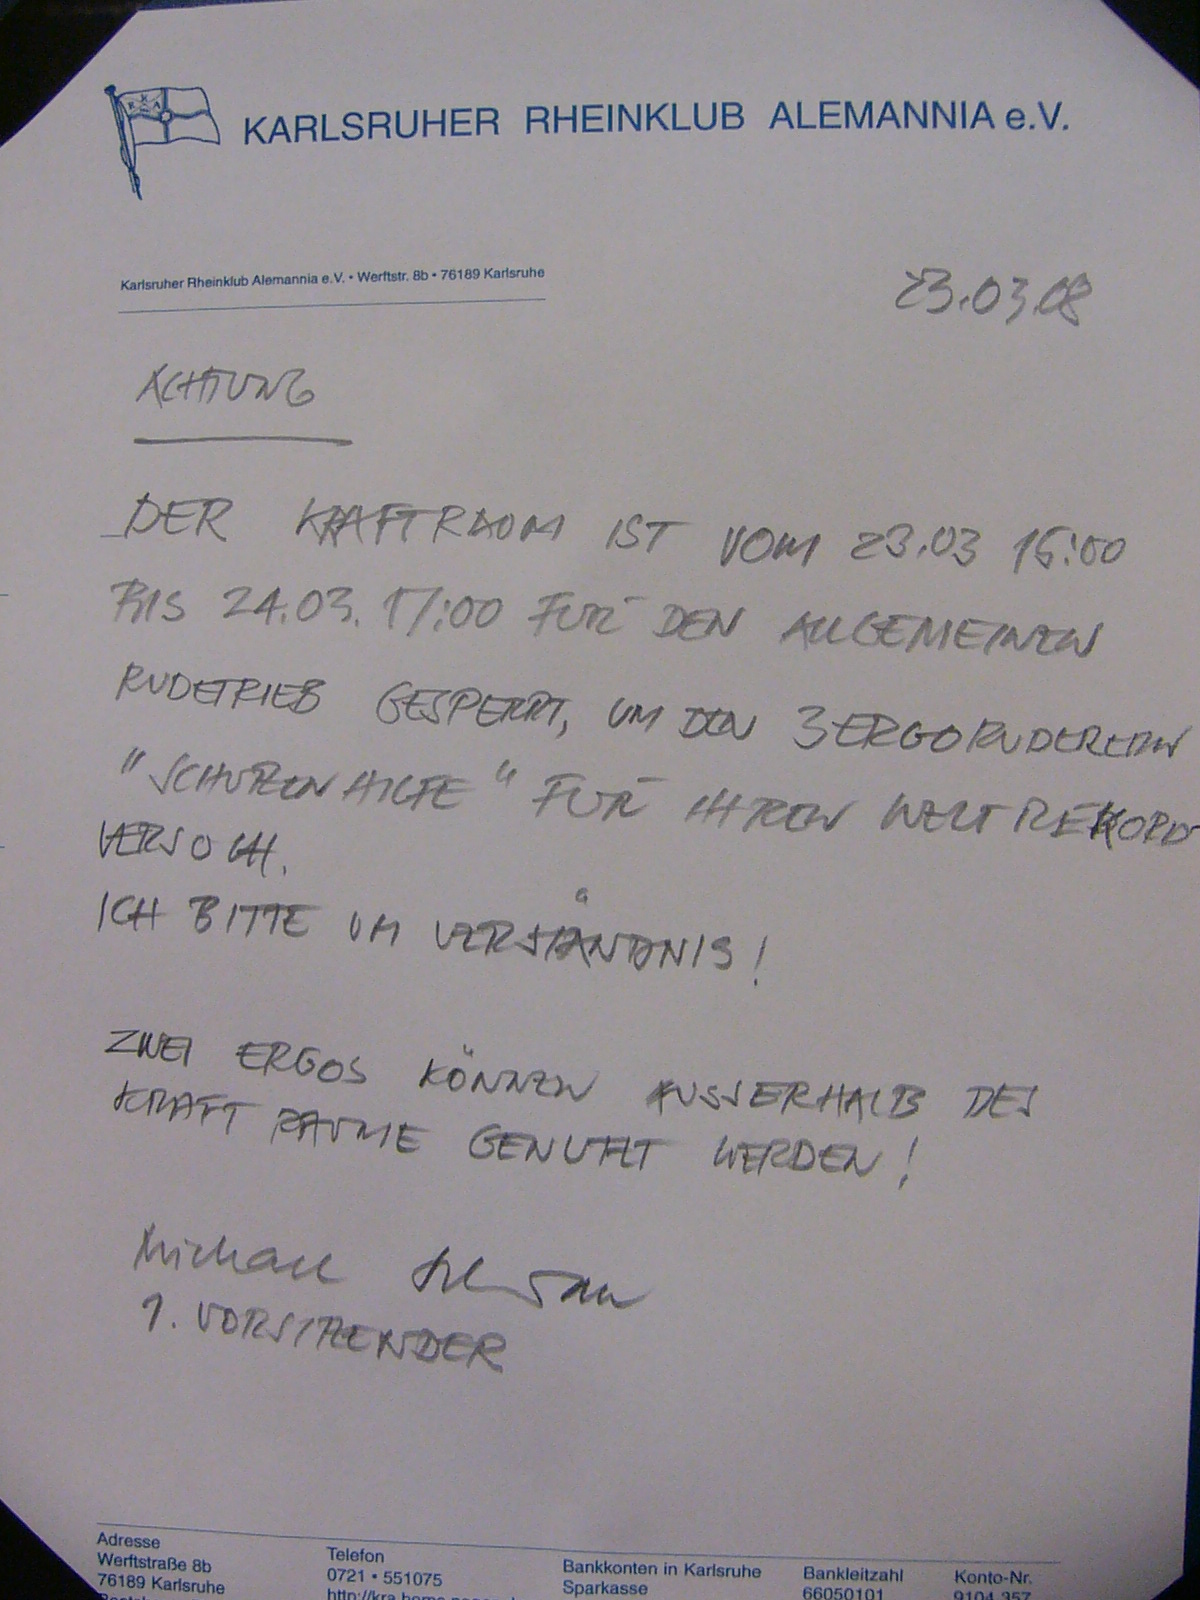 KARLSRUHER RHEINKLUB ALEMANNIA e.V.
Karlsruher Rheinklub Alemannia e.V. • Werftstr. 8b • 76189 Karlsruhe
23.03.08
ACHTUNG
DER KRAFTRAUM IST VOM 23.03 16:00
BIS 24.03. 17:00 FÜR DEN ALLGEMEINEN
RUDETRIEB GESPERRT, UM DEN 3 ERGORUDERERN
"SCHÜTZENHILFE" FÜR IHREN WELTREKORD-
VERSUCH.
ICH BITTE UM VERSTÄNDNIS!
ZWEI ERGOS KÖNNEN AUSSERHALB DES
KRAFTRAUME GENUTZT WERDEN!
Michael
1. VORSITZENDER
Adresse
Werftstraße 8b
76189 Karlsruhe
Telefon
0721 • 551075
Bankkonten in Karlsruhe
Sparkasse
Bankleitzahl
66050101
Konto-Nr.
9104 357